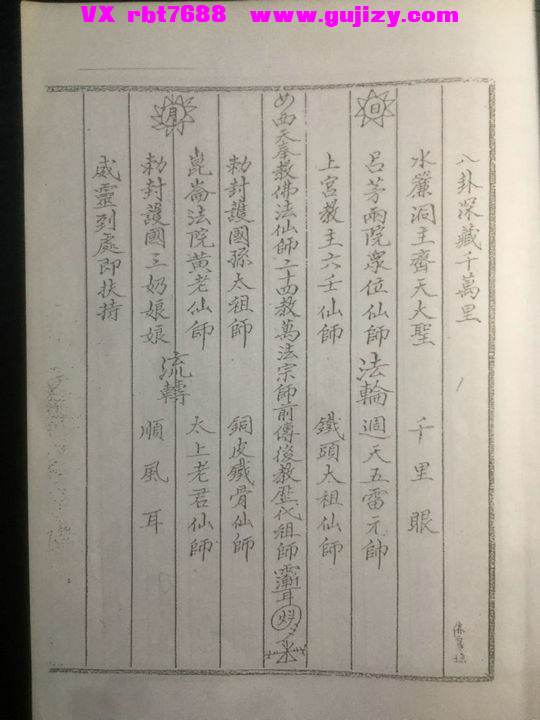 VX rbt7688 www.gujizy.com
八卦深藏千萬里
水簾洞主齊天大聖 千里眼
日 呂茅兩院眾位仙師 法輪 週天五雷元帥
上宮教主六壬仙師 鐵頭太祖仙師
西天奉教佛法仙師二十四教萬法宗師前傳後教歷代祖師
勅封護國孫太祖師 銅皮鐵骨仙師
崑崙法院黃老仙師 太上老君仙師
月 勅封護國三奶娘娘 流轉 順風耳
威靈到處即扶持